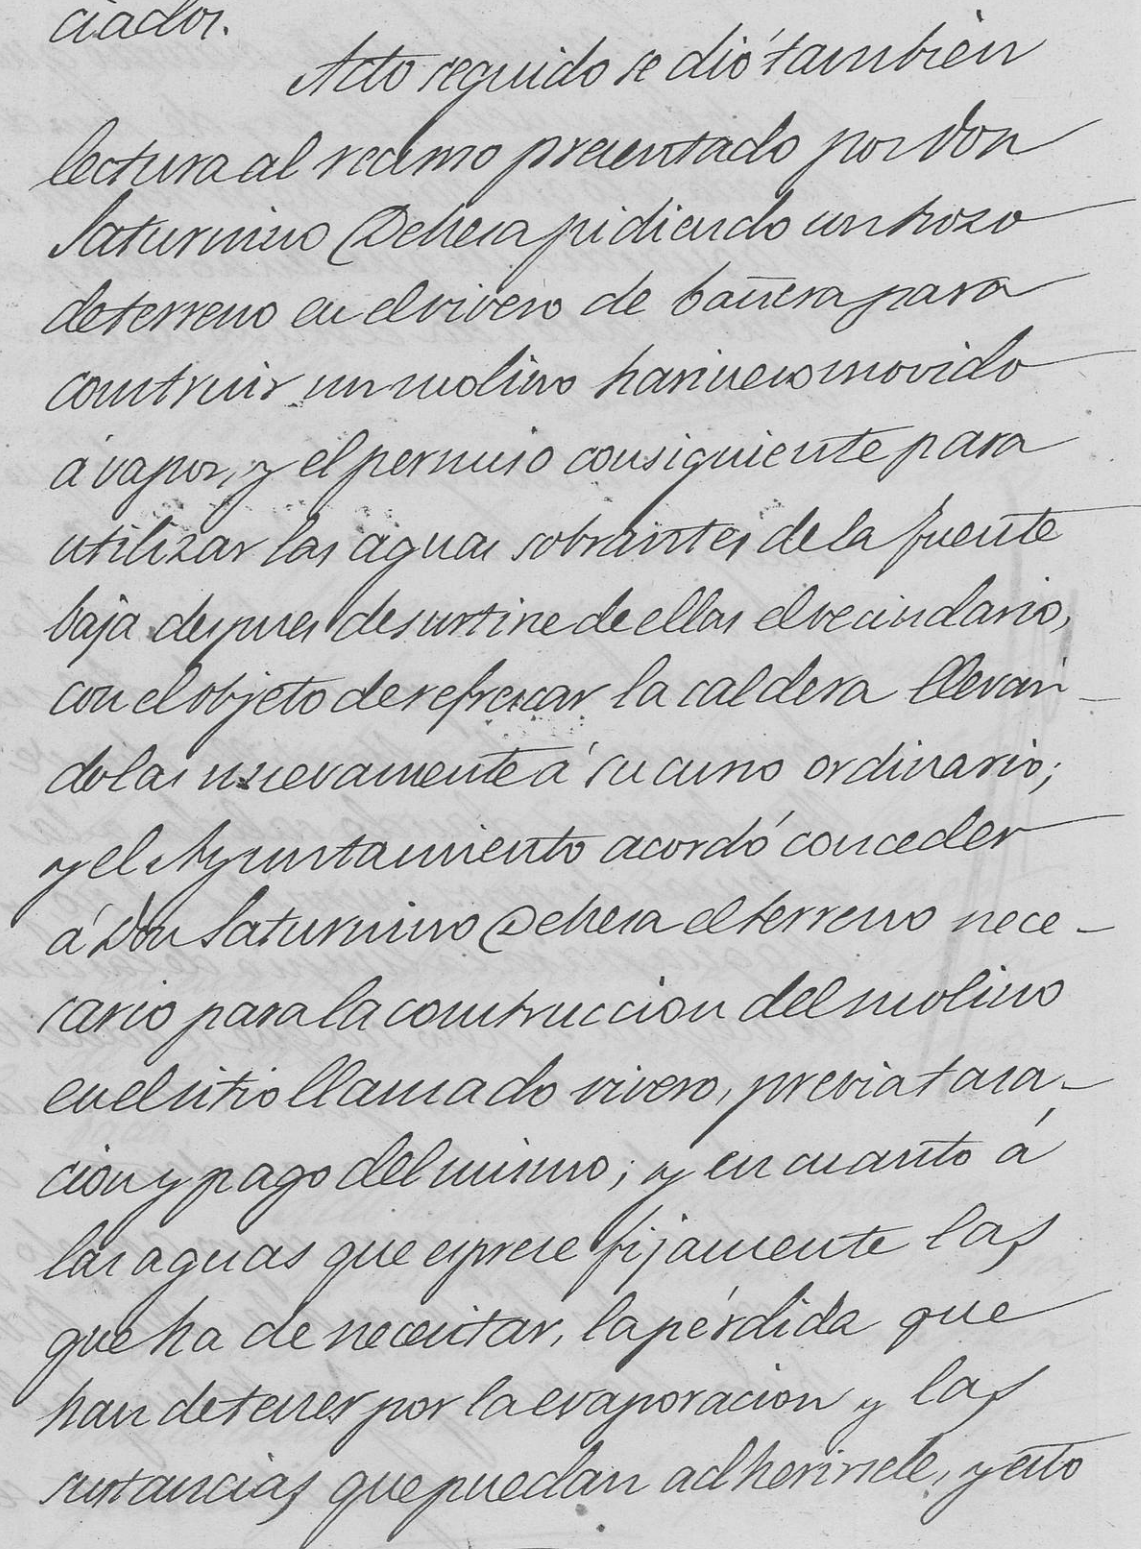 ciados.
Acto seguido se dió tambien
lectura al recurso presentado por Don
Saturnino Dehesa pidiendo un trozo
de terreno en el vivero de bañera para
construir un molino harinero movido
á vapor, y el permiso consiguiente para
utilizar las aguas sobrantes de la fuente
baja despues de surtirse de ellas el vecindario,
con el objeto de refrescar la caldera lleván-
dolas nuevamente á su curso ordinario;
y el Ayuntamiento acordó conceder
á Don Saturnino Dehesa el terreno nece-
sario para la construccion del molino
en el sitio llamado vivero, previa tasa-
cion y pago del mismo; y en cuanto á
las aguas que esprese fijamente las
que ha de necesitar, la pérdida que
han de tener por la evaporacion y las
sustancias que puedan adherirsele, y esto